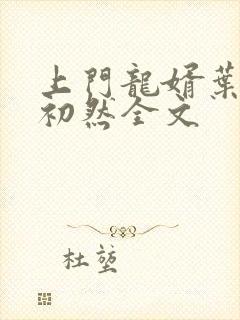 上門龍婿葉
初然全文
杜堃